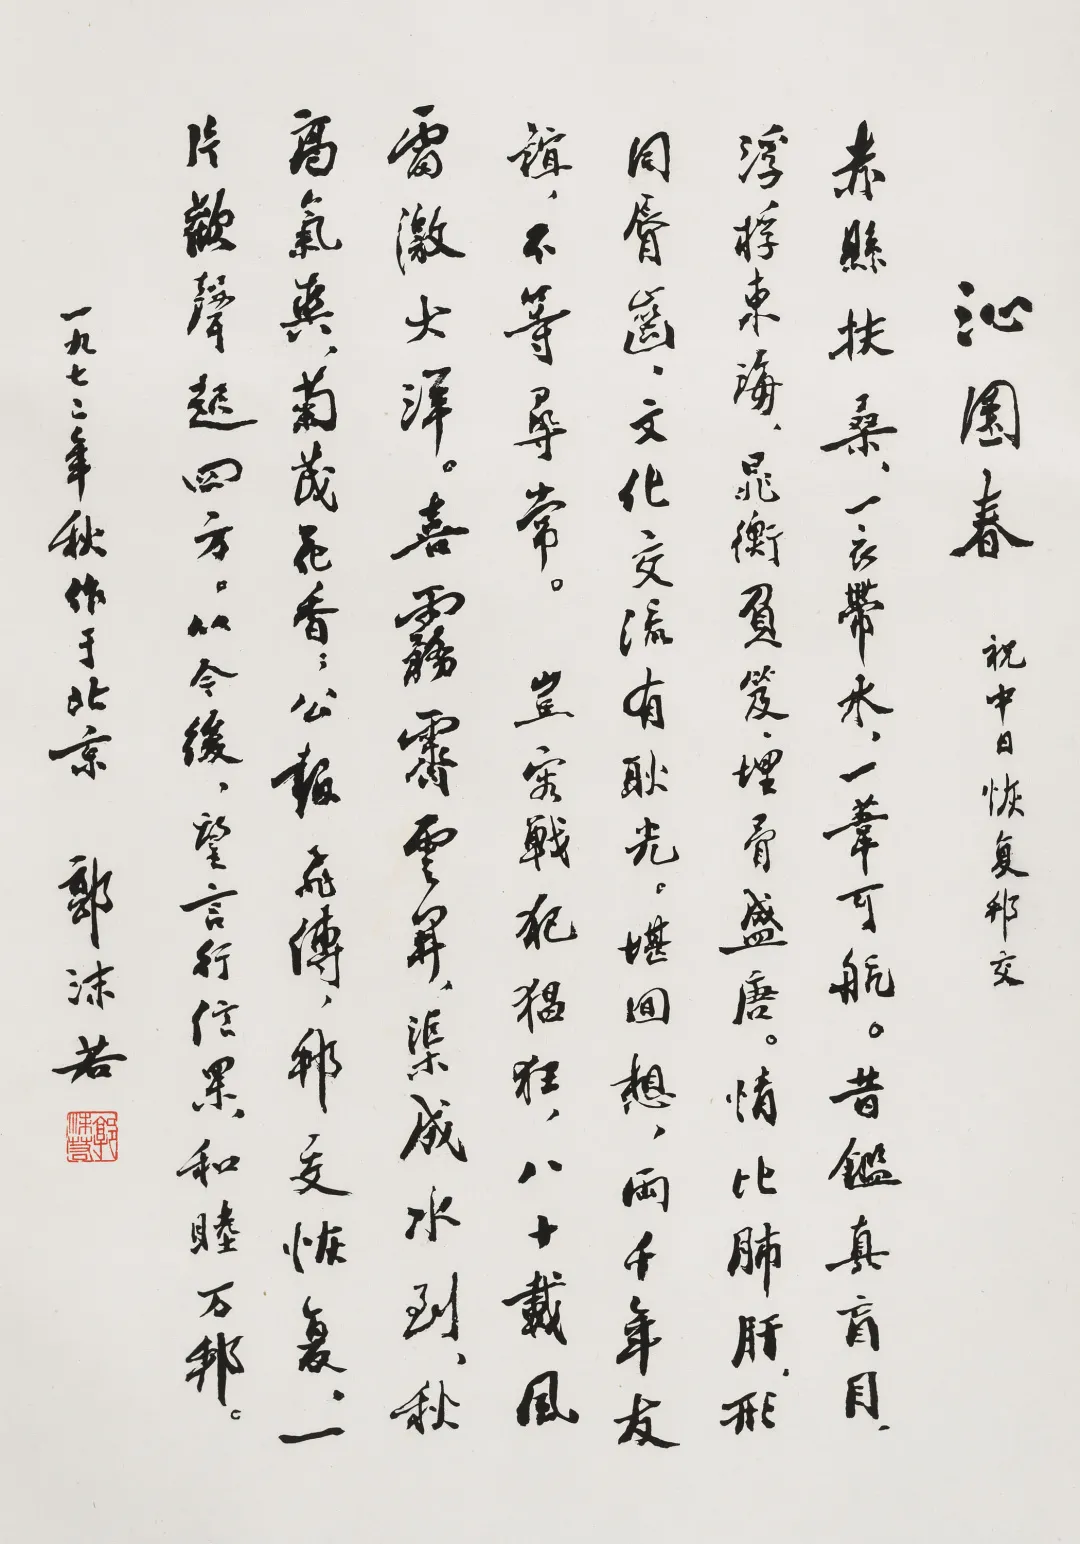 沁園春 祝中日恢复邦交
赤縣扶桑、一衣帶水，一葦可航。昔鑑真盲目、
浮桴東海、晁衡負笈、埋骨盛唐。情比肺肝、形
同脣齒、文化交流有耿光。堪回想，兩千年友
誼，不等尋常。 豈容戰犯猖狂，八十載風
雷激大洋。喜霧霽雲開、渠成水到、秋
高氣爽、菊茂花香；公報飛傳，邦交恢复、一
片歡聲起四方。从今後，望言行信果、和睦万邦。
一九七二年秋作于北京 郭沫若
郭沫若